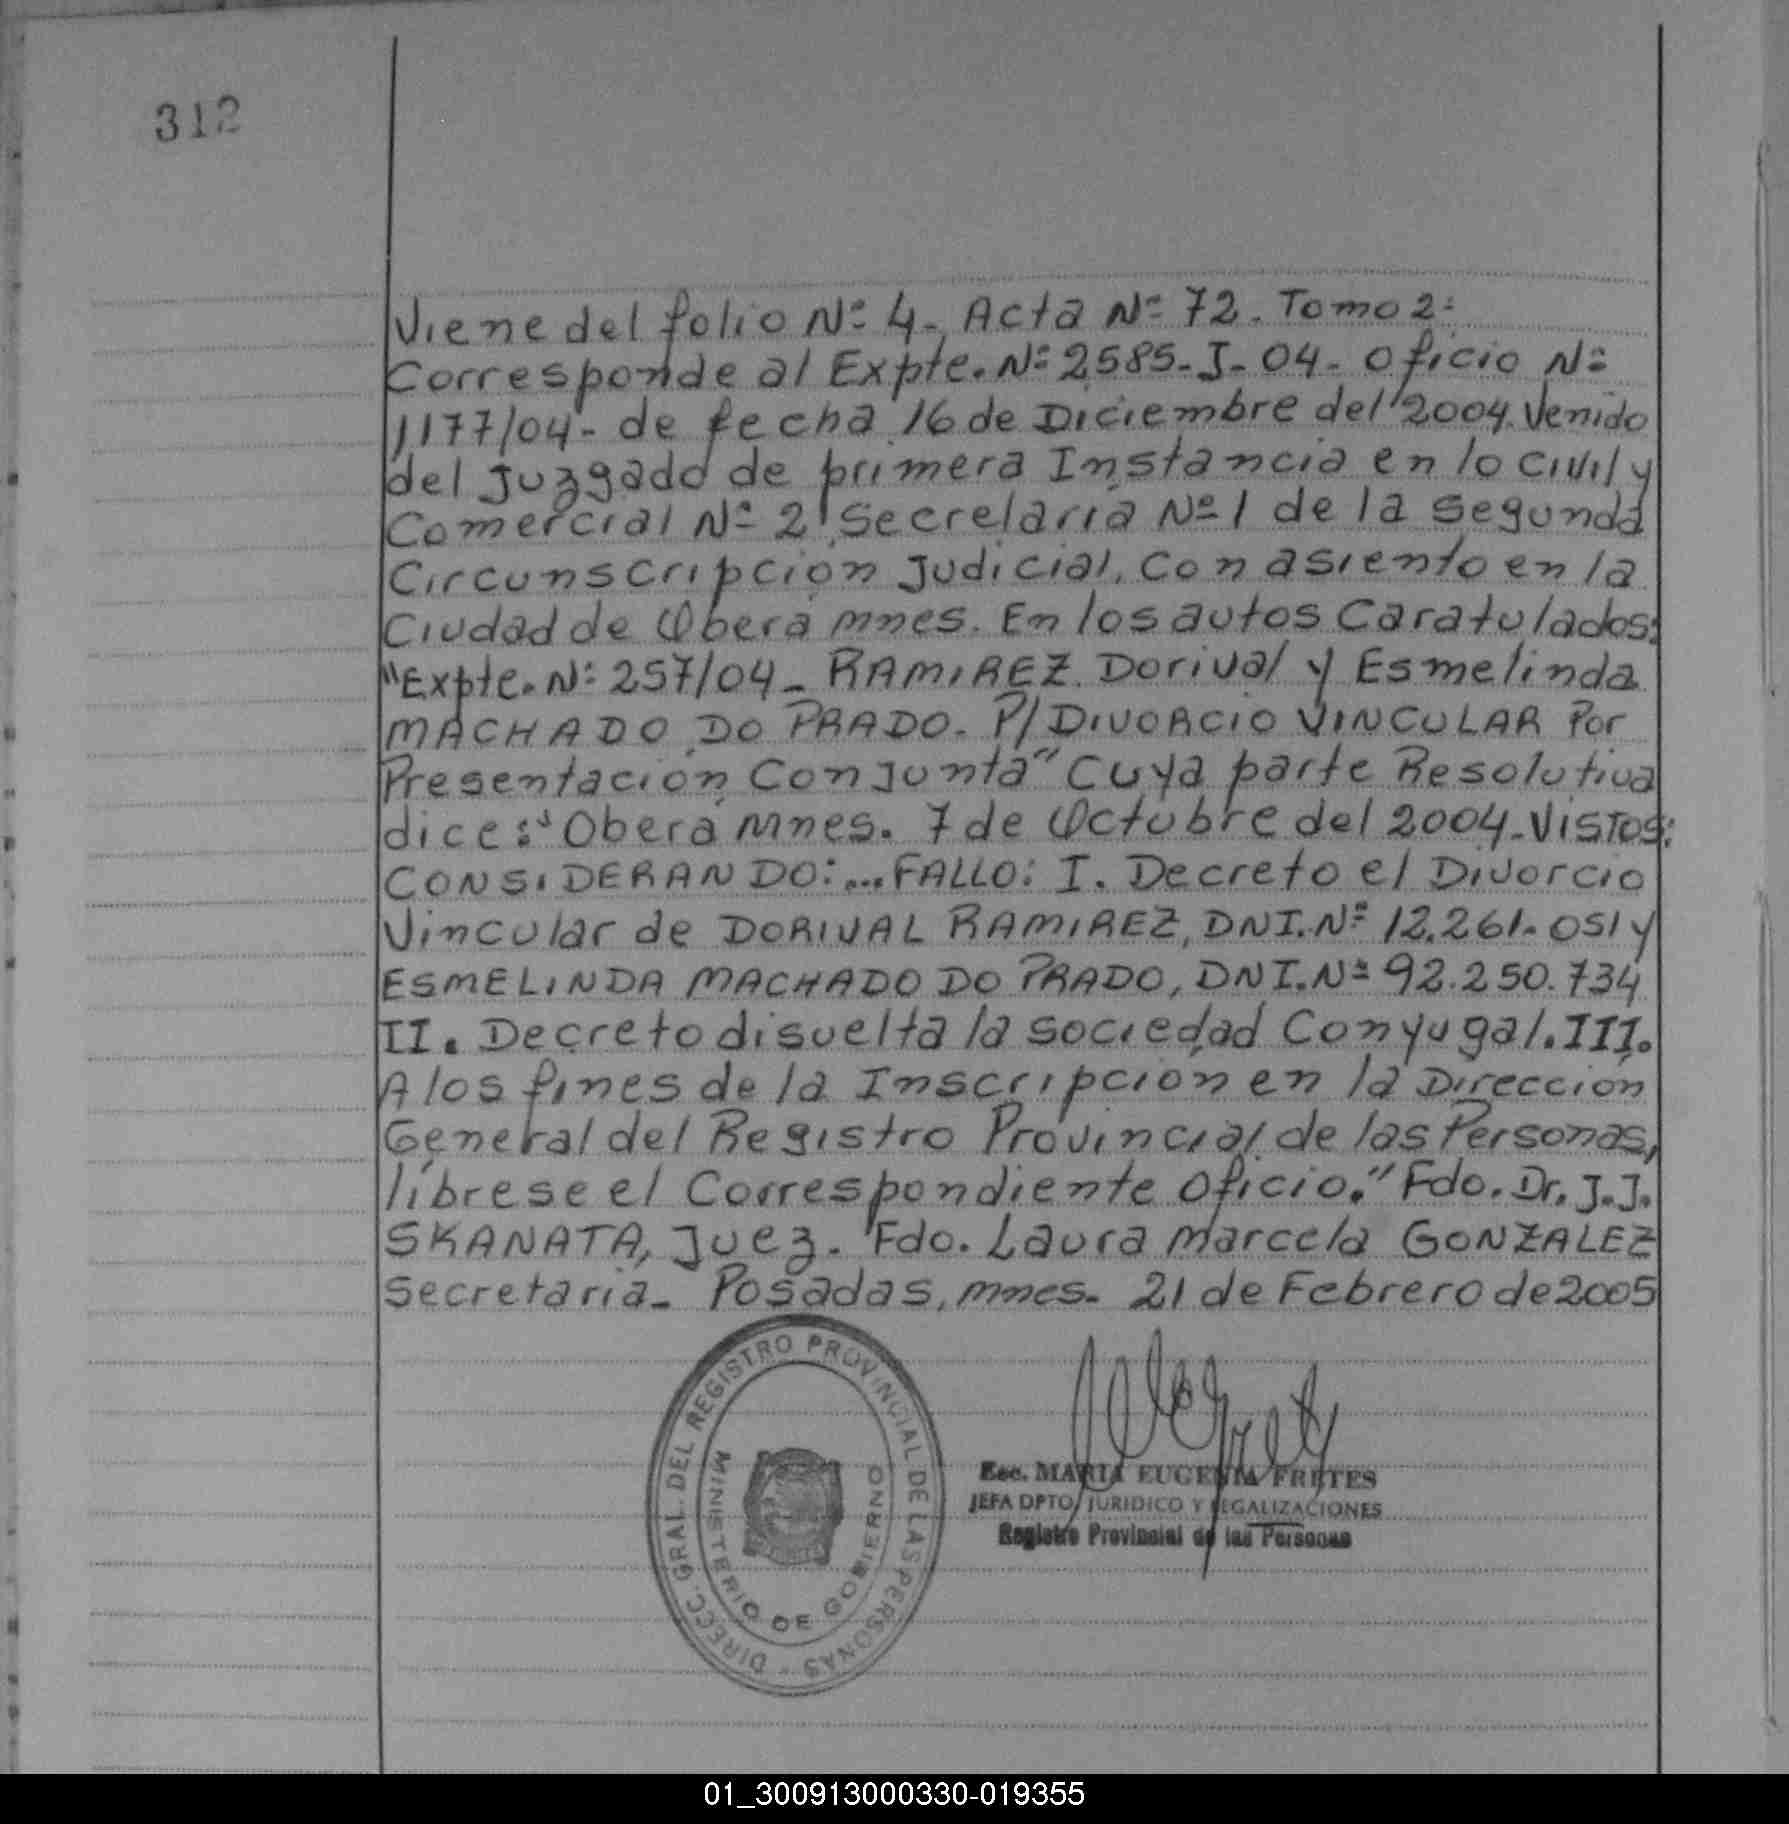 312
Viene del folio Nº 4- Acta Nº 72. Tomo 2:
Corresponde al Expte. Nº 2585-J-04- Oficio Nº
1177/04- de fecha 16 de Diciembre del 2004. Venido
del Juzgado de primera Instancia en lo Civil y
Comercial Nº 2, Secretaría Nº 1 de la Segunda
Circunscripción Judicial, Con asiento en la
Ciudad de Oberá mnes. En los autos Caratulados:
"Expte. Nº 257/04- RAMIREZ. Dorival y Esmelinda
MACHADO DO PRADO. P/DIVORCIO VINCULAR Por
Presentación Conjunta" Cuya parte Resolutiva
dice: "Oberá Mnes. 7 de Octubre del 2004-VISTOS:
CONSIDERANDO:...FALLO: I. Decreto el Divorcio
Vincular de DORIVAL RAMIREZ, DNI.Nº 12.261.051 y
ESMELINDA MACHADO DO PRADO, DNI.Nº 92.250.734
II. Decreto disuelta la sociedad Conyugal. III.
A los fines de la Inscripción en la Dirección
General del Registro Provincial de las Personas,
líbrese el Correspondiente Oficio." Fdo. Dr. J.J.
SKANATA, Juez. Fdo. Laura Marcela GONZALEZ
Secretaria- Posadas, mnes- 21 de Febrero de 2005
DIRECC. GRAL. DEL REGISTRO PROVINCIAL DE LAS PERSONAS -
MINISTERIO DE GOBIERNO
Esc. MARIA EUGENIA FRETES
JEFA DPTO. JURIDICO Y LEGALIZACIONES
Registro Provincial de las Personas
01_300913000330-019355